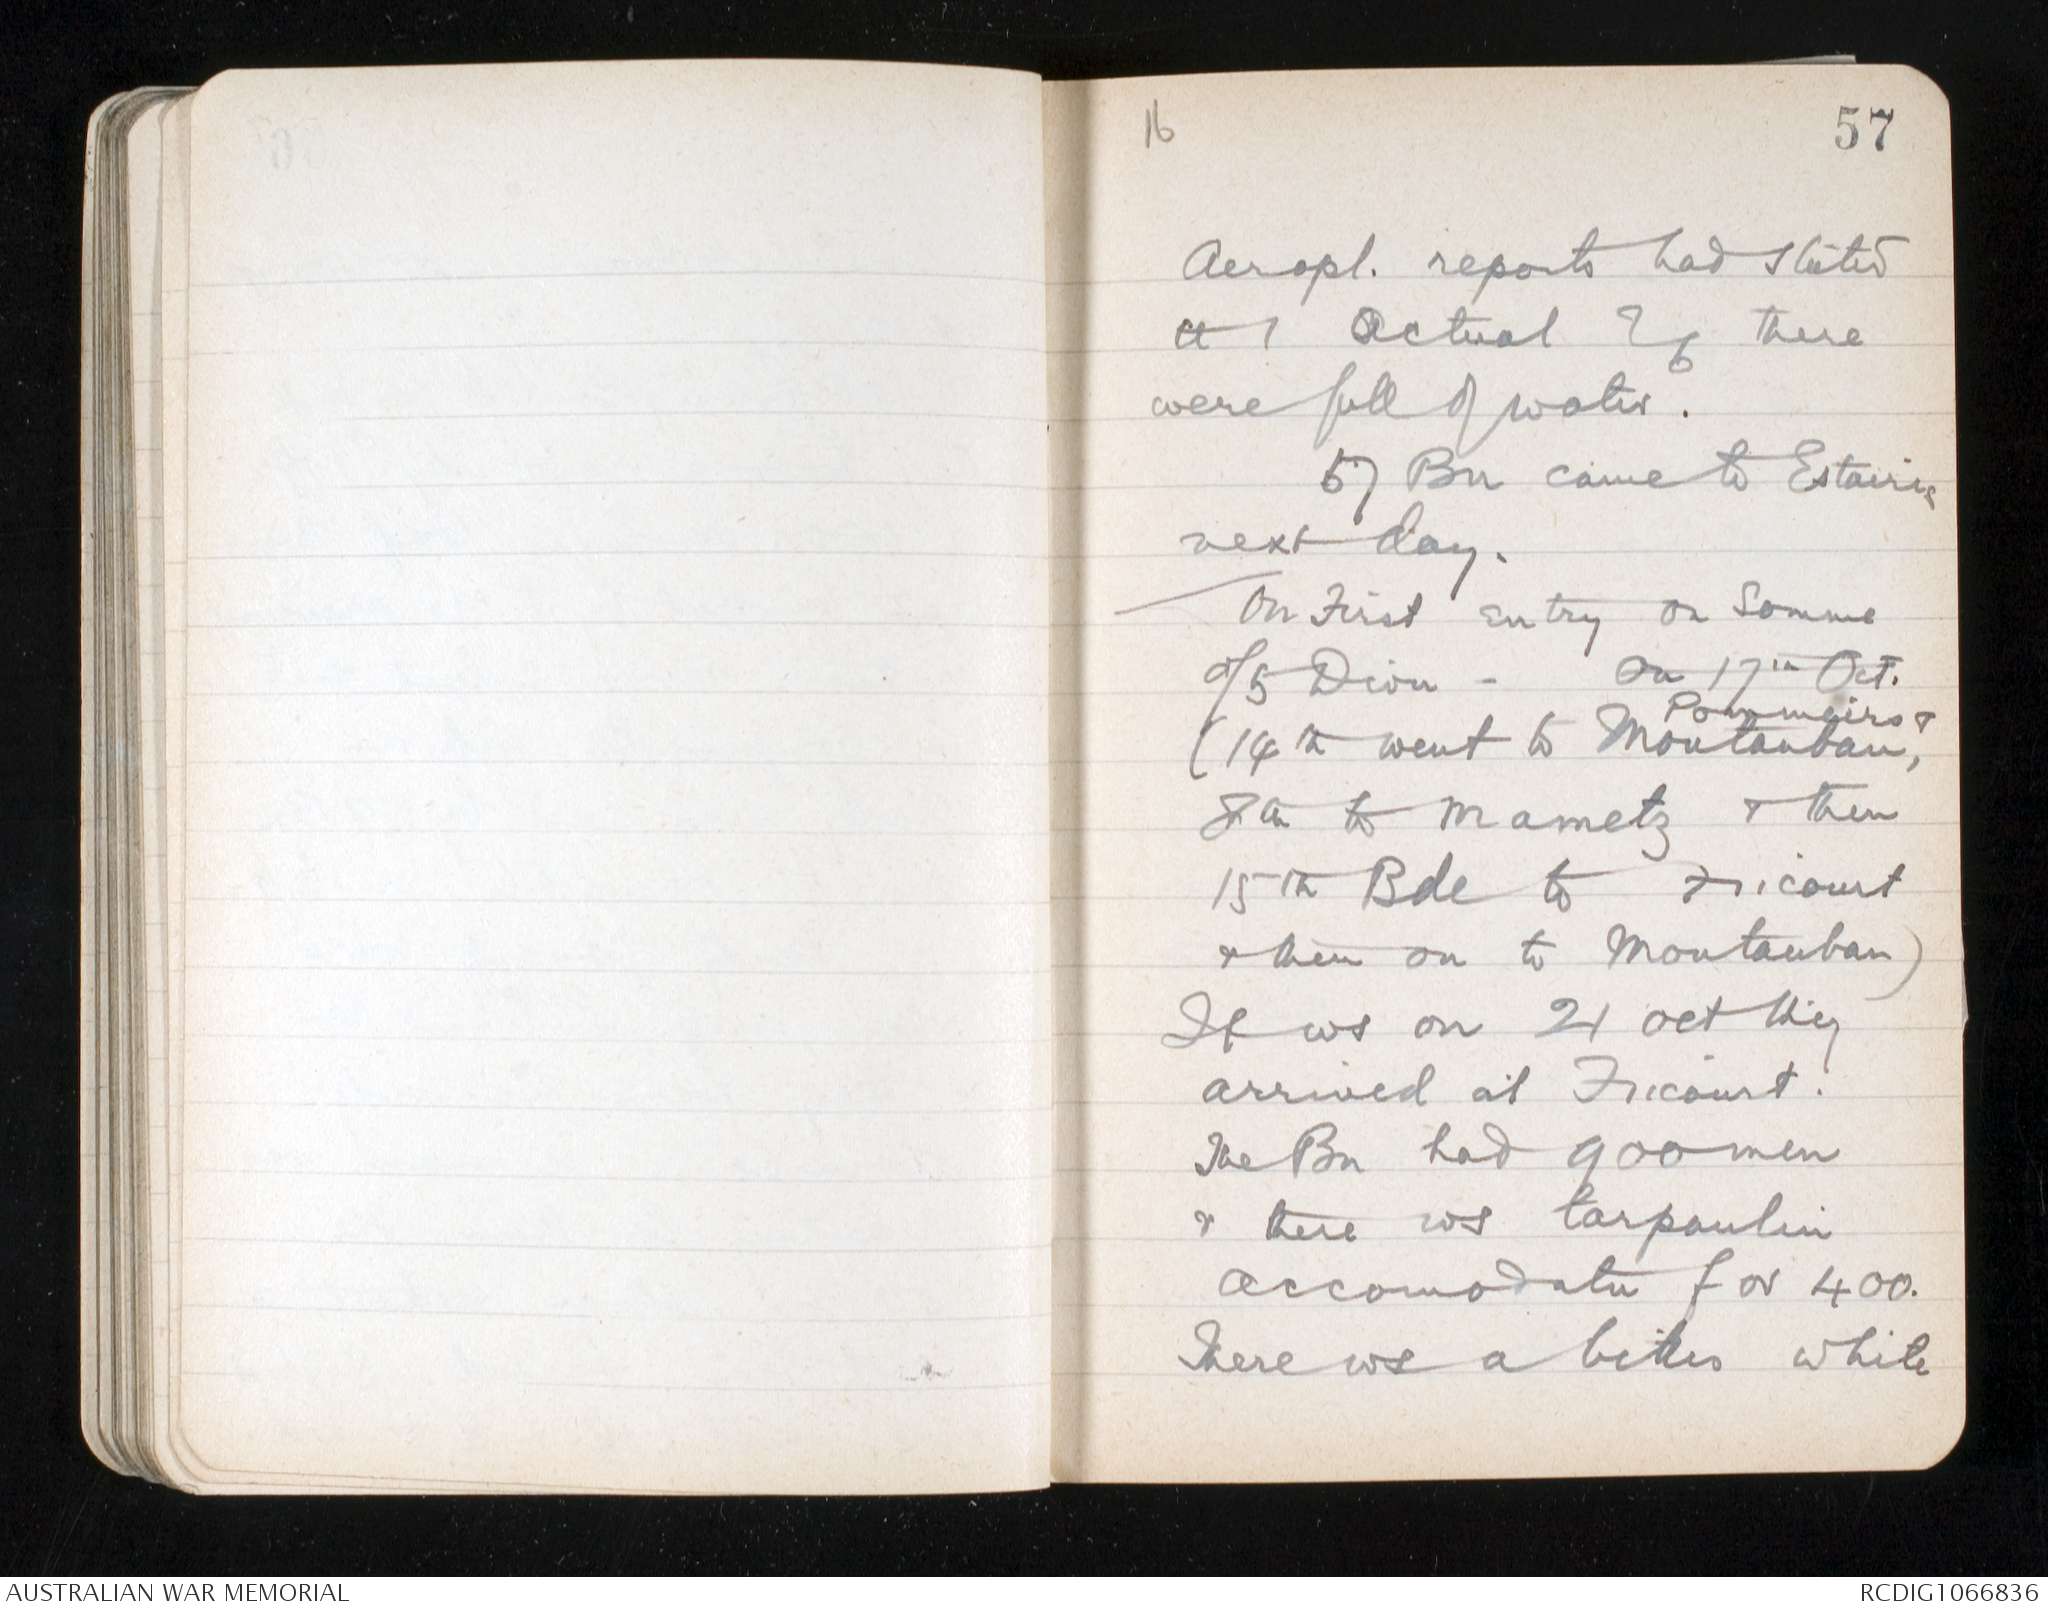 16
57
Aeropl. reports had stated
tt / Actual there
were full of water.
57 Bn came to Estaires
next day.
On First entry on Somme
of 5 Divn - On 17th Oct.
Pommiers &
(14th went to Montauban,
8th to Mametz & then
15th Bde to Fricourt
& then on to Montauban)
It ws on 21 Oct they
arrived at Fricourt.
The Bn had 900 men
& there ws tarpaulin
accomodatn for 400.
There ws a bitter white
AUSTRALIAN WAR MEMORIAL
RCDIG1066836